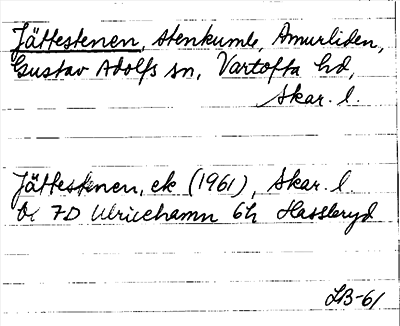 Jättestenen, stenkumle, Amurliden,
Gustav Adolfs sn, Vartofta hd,
Skar. l.
Jättestenen, ek (1961), Skar. l.
bl 7D Ulricehamn 6h Hassleryd
LB-61